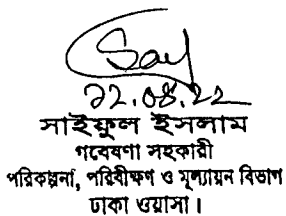 Say
22.08.22
সাইফুল ইসলাম
গবেষণা সহকারী
পরিকল্পনা, পরিবীক্ষণ ও মূল্যায়ন বিভাগ
ঢাকা ওয়াসা।